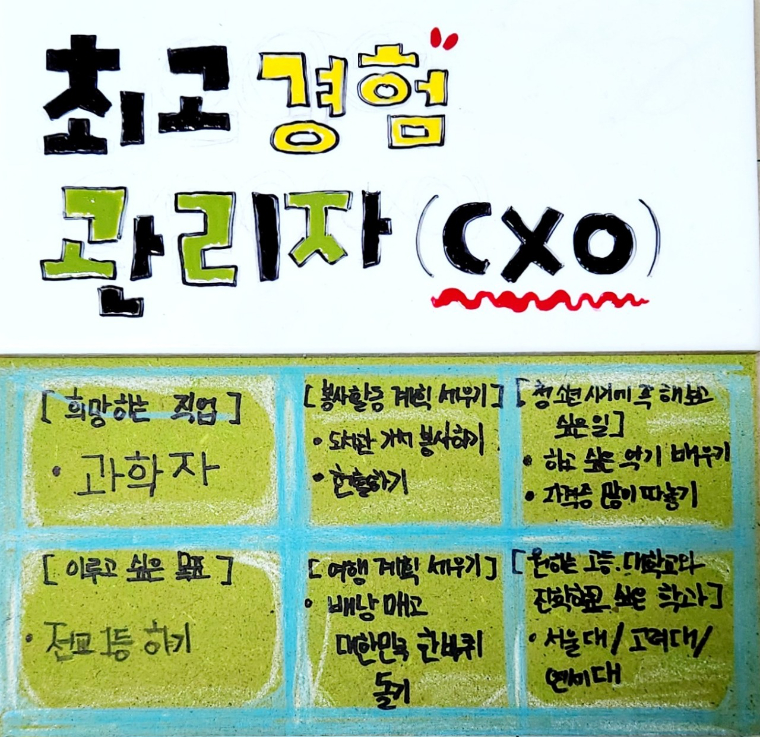 최고 경험
관리자 (CXO)
[희망하는 직업]
• 과학자
[봉사활동 계획 세우기]
• 도서관 가서 봉사하기
• 헌혈하기
[청소년 시기에 꼭 해보고
싶은 일]
• 하고 싶은 악기 배우기
• 자격증 많이 따놓기
[이루고 싶은 목표]
• 전교 1등 하기
[여행 계획 세우기]
• 배낭 매고
대한민국 한바퀴
돌기
[원하는 고등·대학교와
진학하고 싶은 학과]
• 서울대/고려대/
연세대